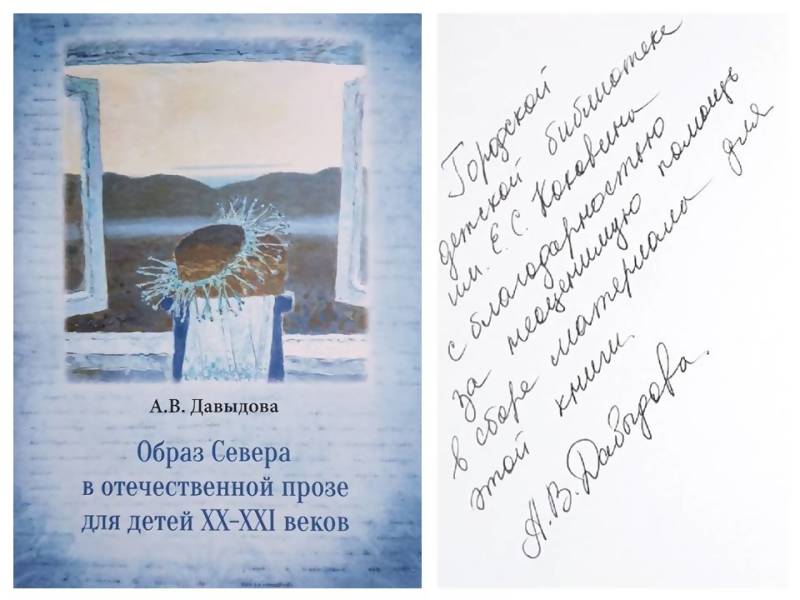 А.В. Давыдова
Образ Севера
в отечественной прозе
для детей XX–XXI веков
Городской
детской библиотеке
им. Е.С. Коковина
с благодарностью
за неоценимую помощь
в сборе материала для
этой книги.
А.В. Давыдова.